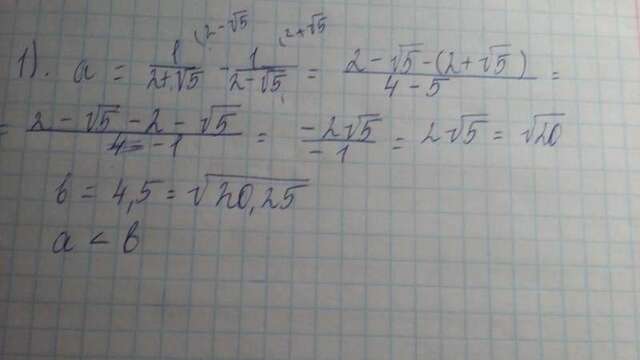 1). a = 1/(2+√5) (2-√5 - 1/(2-√5) (2+√5 = (2-√5-(2+√5))/(4-5) =
= (2-√5-2-√5)/-1 = -2√5/-1 = 2√5 = √20
b = 4,5 = √20,25
a < b